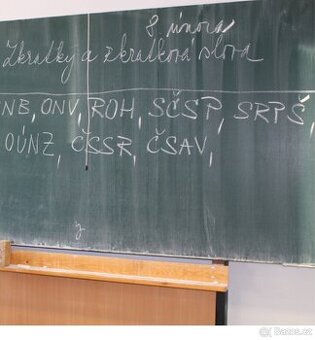 8. února
Zkratky a zkratková slova
NB, ONV, ROH, SČSP, SRPŠ,
OÚNZ, ČSSR, ČSAV,
Bazos.cz